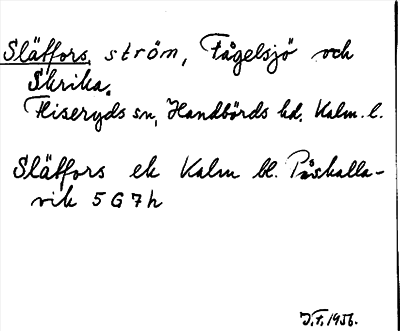 Slätfors, ström, Fågelsjö och
Skrika.
Fliseryds sn, Handbörds hd. Kalm. l.
Slätfors ek Kalm bl. Påskalla-
vik 5 G 7 h
J.F. 1956.